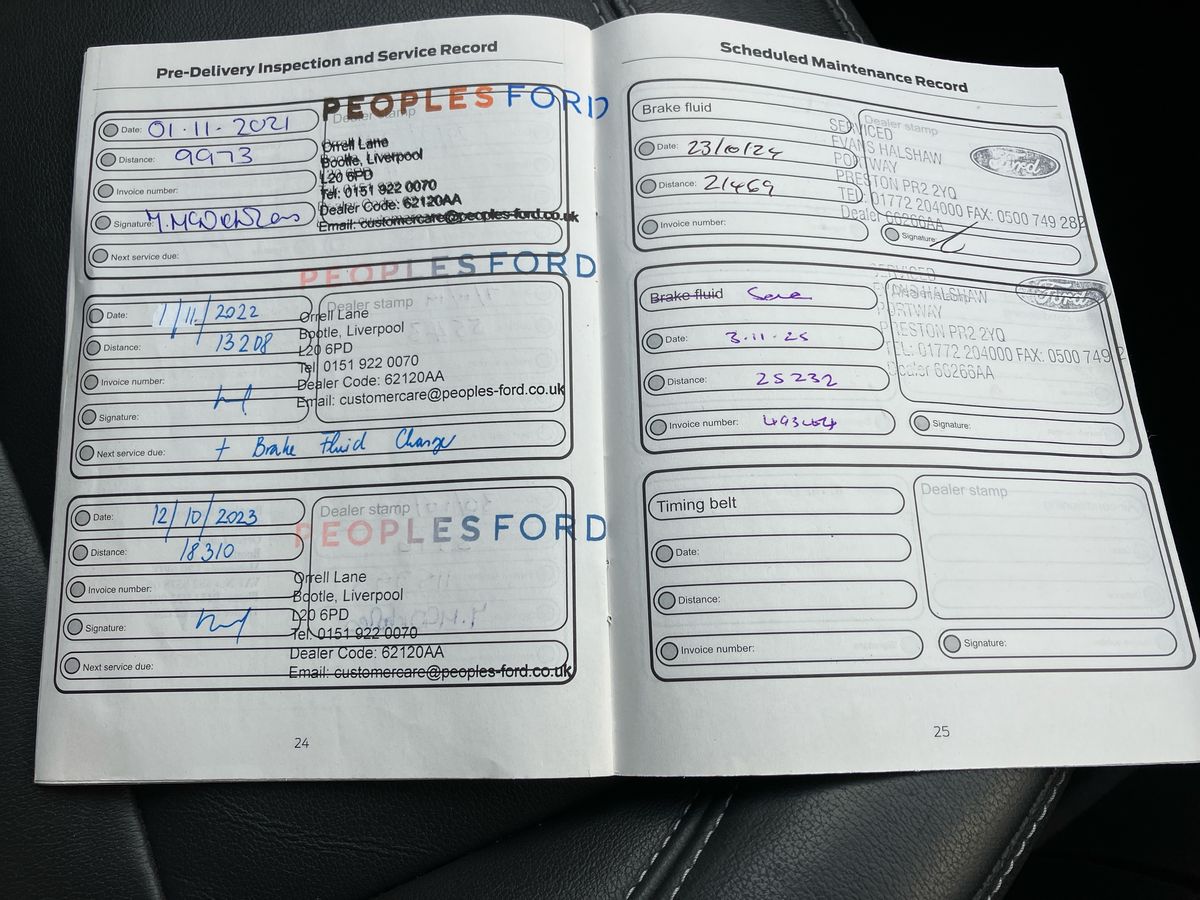 Pre-Delivery Inspection and Service Record
PEOPLES FORD
Dealer stamp
Date: 01.11.2021
Orrell Lane
Bootle, Liverpool
Distance: 9973
L20 6PD
Invoice number:
Tel: 0151 922 0070
Dealer Code: 62120AA
Signature:
Email: customercare@peoples-ford.co.uk
Next service due:
PEOPLES FORD
Dealer stamp
Date: 1/11/2022
Orrell Lane
Bootle, Liverpool
Distance: 13208
L20 6PD
Tel: 0151 922 0070
Invoice number:
Dealer Code: 62120AA
Email: customercare@peoples-ford.co.uk
Signature:
Next service due: + Brake Fluid Change
Dealer stamp
Date: 12/10/2023
PEOPLES FORD
Distance: 18310
Orrell Lane
Invoice number:
Bootle, Liverpool
L20 6PD
Signature:
Tel: 0151 922 0070
Dealer Code: 62120AA
Next service due:
Email: customercare@peoples-ford.co.uk
24
Scheduled Maintenance Record
Brake fluid
Dealer stamp
SERVICED
EVANS HALSHAW
Ford
Date: 23/10/24
PORTWAY
PRESTON PR2 2YQ
Distance: 21469
TEL: 01772 204000 FAX: 0500 749 282
Dealer 66266AA
Invoice number:
Signature:
Brake fluid
SERVICED
Dealer stamp
EVANS HALSHAW
Ford
PORTWAY
Date: 3.11.25
PRESTON PR2 2YQ
TEL: 01772 204000 FAX: 0500 749 2
Distance: 25232
Dealer 66266AA
Invoice number:
Signature:
Timing belt
Dealer stamp
Date:
Distance:
Invoice number:
Signature:
25